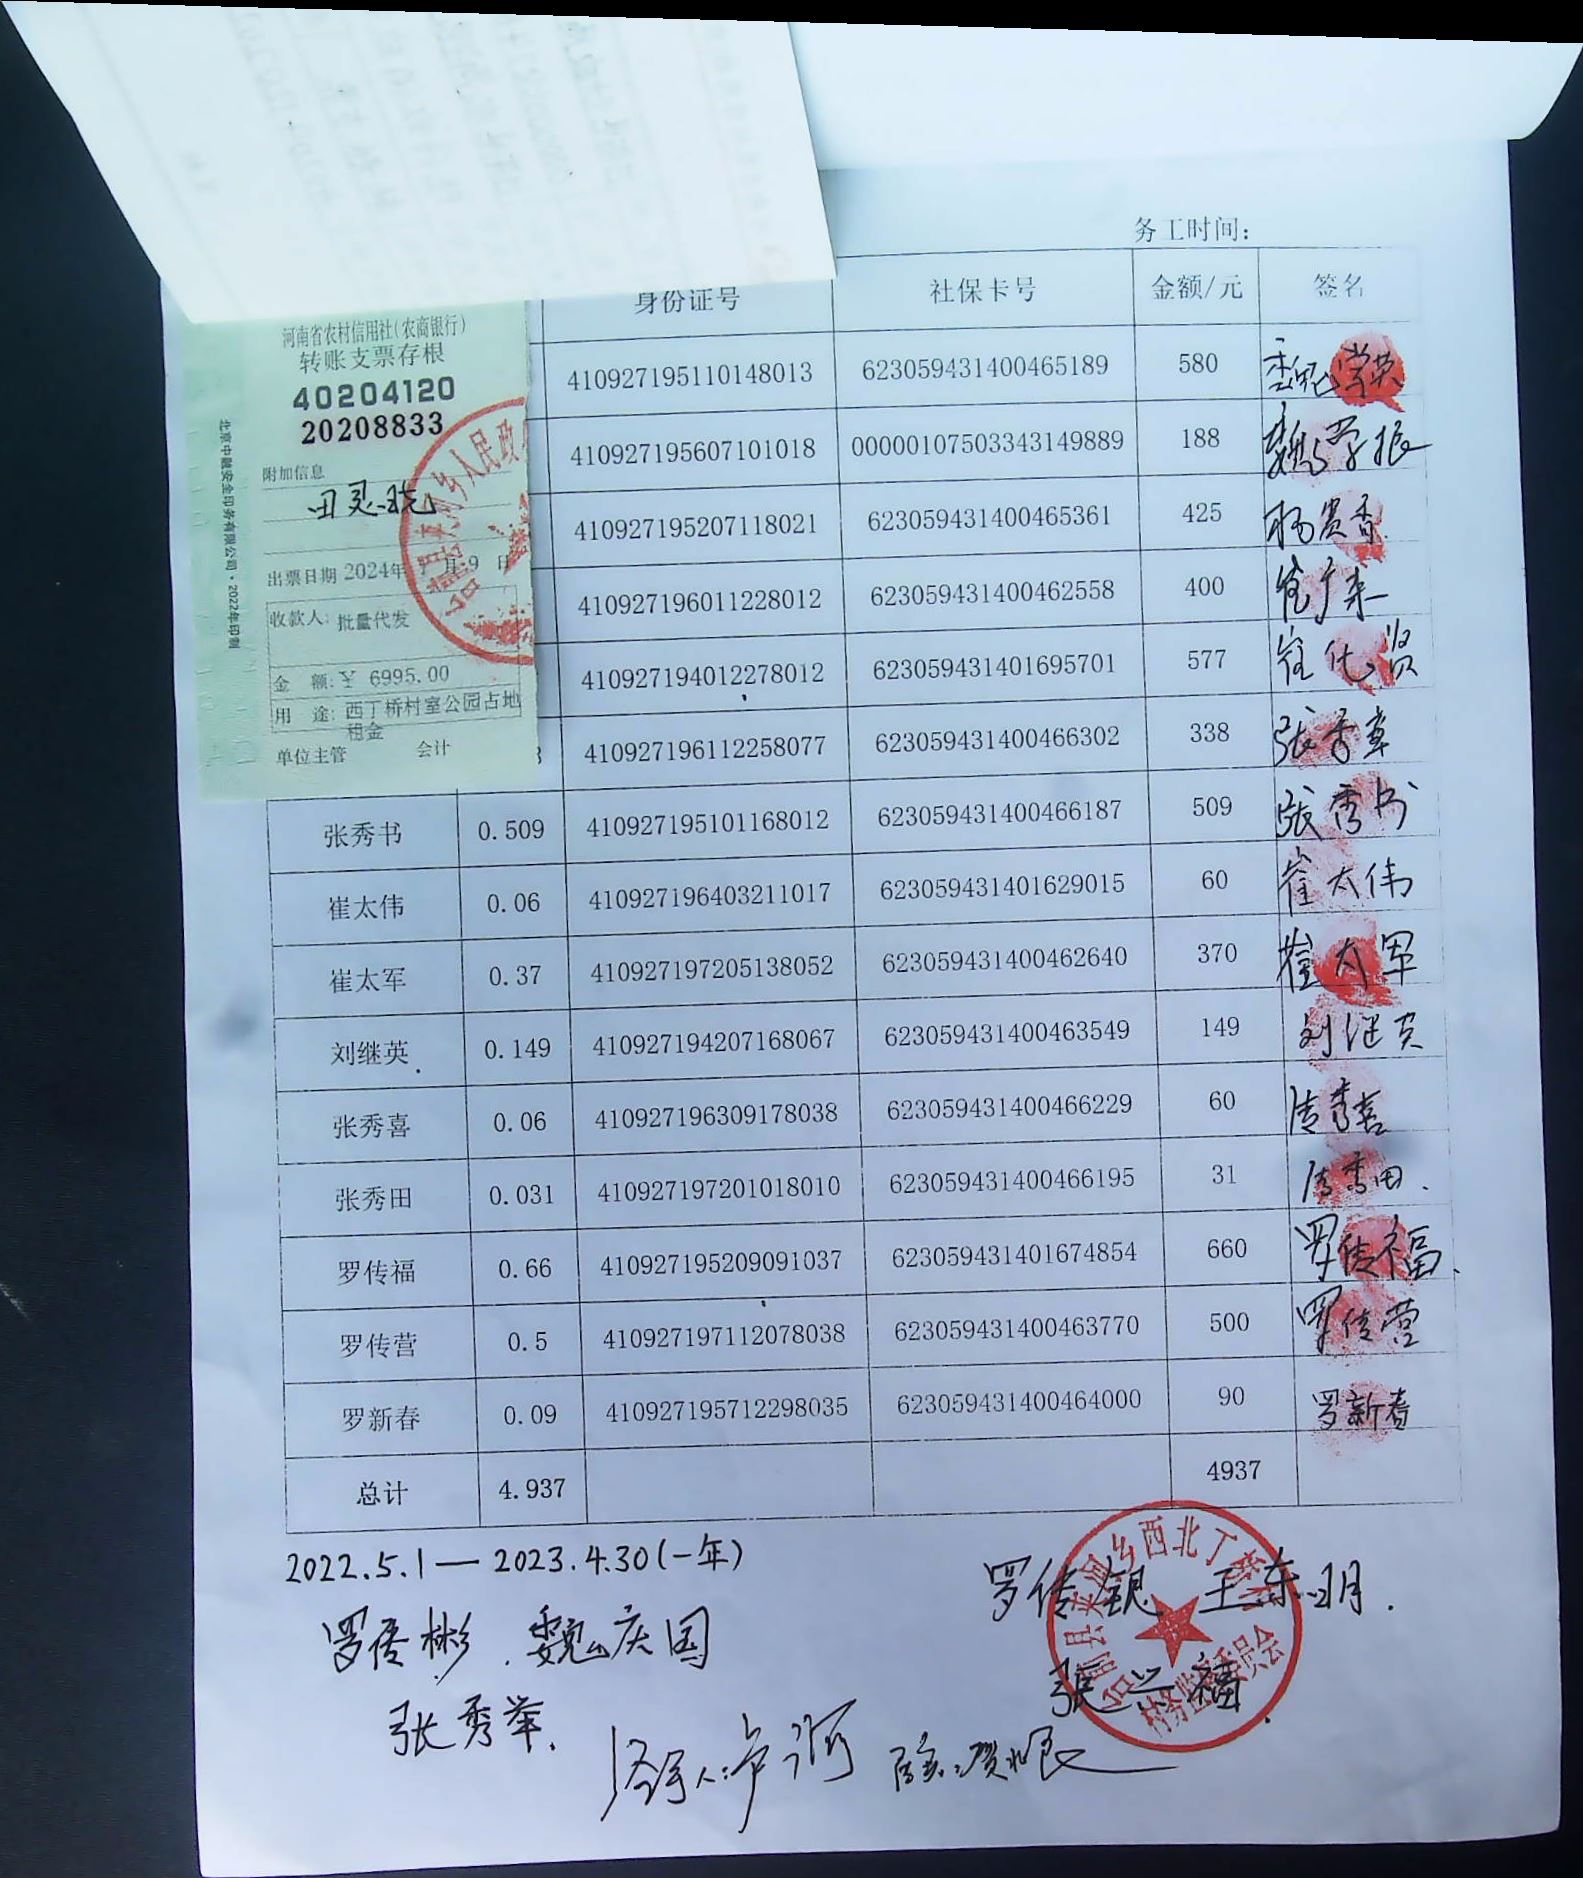 务工时间:
身份证号 社保卡号 金额/元 签名
410927195110148013 623059431400465189 580 魏学英
410927195607101018 00000107503343149889 188 魏学振
410927195207118021 623059431400465361 425 杨贵香
410927196011228012 623059431400462558 400 崔广来
410927194012278012 623059431401695701 577 崔化贤
410927196112258077 623059431400466302 338 张秀章
张秀书 0.509 410927195101168012 623059431400466187 509 张秀书
崔太伟 0.06 410927196403211017 623059431401629015 60 崔太伟
崔太军 0.37 410927197205138052 623059431400462640 370 崔太军
刘继英 0.149 410927194207168067 623059431400463549 149 刘继英
张秀喜 0.06 410927196309178038 623059431400466229 60 张秀喜
张秀田 0.031 410927197201018010 623059431400466195 31 张秀田
罗传福 0.66 410927195209091037 623059431401674854 660 罗传福
罗传营 0.5 410927197112078038 623059431400463770 500 罗传营
罗新春 0.09 410927195712298035 623059431400464000 90 罗新春
总计 4.937 4937
河南省农村信用社(农商银行)
转账支票存根
40204120
20208833
附加信息
田灵晓
出票日期 2024年 月 9 日
收款人: 批量代发
金 额: ¥ 6995.00
用 途: 西丁桥村室公园占地
租金
单位主管 会计
北京中融安全印务有限公司·2022年印制
2022.5.1—2023.4.30(一年)
罗传彬 魏庆国
张秀举
罗传银 王东明
张兴福
经手人: 卢河
村务监督委员会